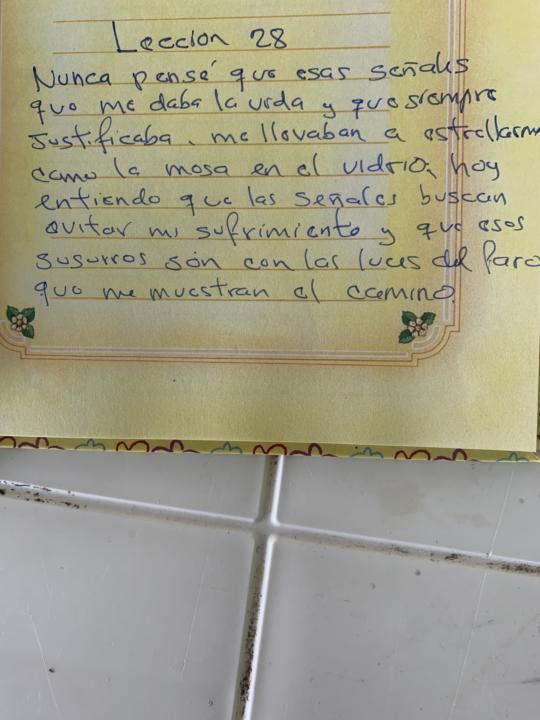 Leccion 28
Nunca pensé que esas señales
que me daba la vida y que siempre
justificaba, me llevaban a estrellarm
como la mosa en el vidrio, hoy
entiendo que las señales buscan
evitar mi sufrimiento y que esos
susurros són con las luces del faro
que me muestran el camino.